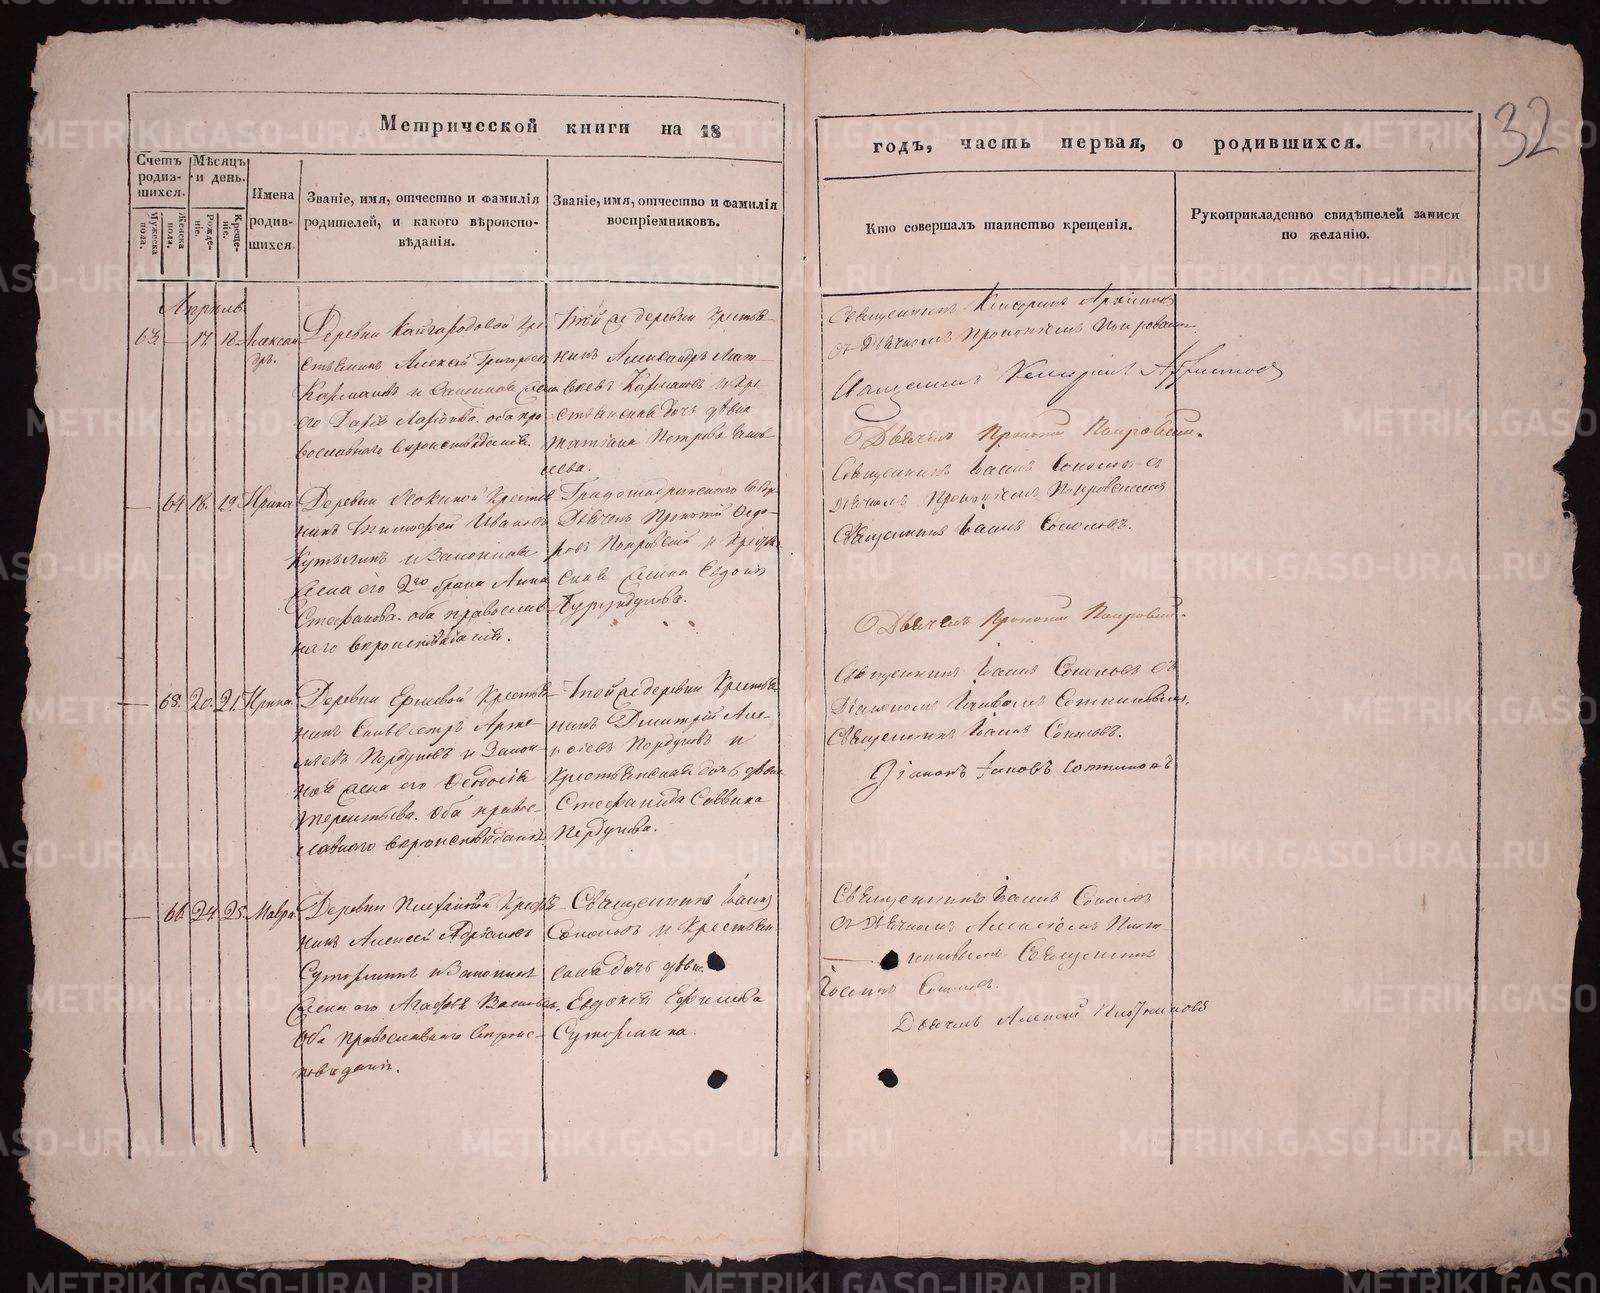 Метрической книги на 18
годъ, часть первая, о родившихся.
32
Счетъ родив-шихся.
Мужеска пола.
Женска пола.
Мѣсяцъ и день.
Рожде-ніе.
Креще-ніе.
Имена родив-шихся.
Званіе, имя, отчество и фамилія
родителей, и какого вѣроиспо-
вѣданія.
Званіе, имя, отчество и фамилія
воспріемниковъ.
Кто совершалъ таинство крещенія.
Рукоприкладство свидѣтелей записи
по желанію.
Апрѣль
63. — 17. 18. Алексан
дръ.
Деревни Кайгородовой Кре
стьянинъ Алексѣй Григорьевъ
Кармановъ и законная жена
его Дарія оба пра
вославнаго вѣроисповѣданія.
Той же деревни крестья
нинъ Александръ Мат
вѣевъ Кармановъ и кре
стьянская дочь дѣвка
Татіана Петрова
Священникъ
съ Дьячкомъ Прокопіемъ Покровскимъ
Священникъ
Дьячекъ Прокопій Покровскій.
— 64. 18. 19. Ирина
Деревни крестья
нинъ Тимофей Ивановъ
и законная
жена его 2го брака Анна
Стефанова. оба православ
наго вѣроисповѣданія.
Дьячекъ Прокопій Ѳедо-
ровъ Покровскій и крестья
жена Евдокія
Священникъ Іоаннъ Соколовъ съ
Дьячкомъ Прокопіемъ Покровскимъ
Священникъ Іоаннъ Соколовъ.
Дьячекъ Прокопій Покровскій.
— 65. 20. 21. Ирина.
Деревни крестья
нинъ Сильвестръ Арте-
мьевъ Пердуновъ и закон-
ная жена его Ѳеодосія
Терентьева. Оба право-
славнаго вѣроисповѣданія
Той же деревни крестья
нинъ Дмитрій Але-
ксѣевъ Пердуновъ и
крестьянская дочь дѣвка
Стефанида Саввина
Пердунова.
Священникъ Іоаннъ Соколовъ съ
Діакономъ Іаковомъ Сотниковымъ.
Священникъ Іоаннъ Соколовъ.
Діаконъ Іаковъ Сотниковъ
— 66. 24. 25. Мавра.
Деревни крестья
нинъ Алексѣй Адріановъ
Суторминъ и законная
жена его Агафья Васильева.
Оба православнаго вѣроис-
повѣданія.
Священникъ Іоаннъ
Соколовъ и крестьян
ская дочь дѣвка
Евдокія Ефимова
Сутормина.
Священникъ Іоаннъ Соколовъ
съ Дьячкомъ Алексѣемъ Плот
никовымъ. Священникъ
Іоаннъ Соколовъ.
Дьячекъ Алексѣй Плотниковъ
METRIKI.GASO-URAL.RU